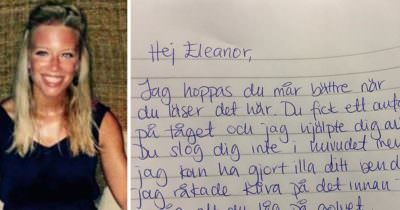 Hej Eleanor,
Jag hoppas du mår bättre när
du läser det här. Du fick ett
på tåget och jag hjälpte dig
Du slog dig inte i huvudet men
jag kan ha gjort illa ditt ben
Jag råkade köra på det innan
du låg på golvet